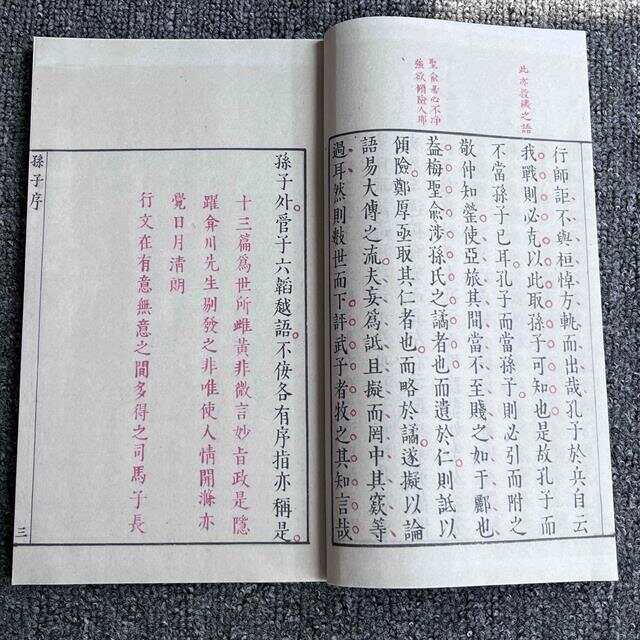 此亦投機之語
聖俞心不淨
強欲傾險人耶
行師詎不與桓悼方軌而出哉孔子於兵自云
我戰則必克以此取孫子可知也是故孔子而
不當孫子已耳孔子而當孫子則必引而附之
敬仲知罃使亞旅其間當不至賤之如于酈也
益梅聖俞涉孫氏之譎者也而遺於仁則詆以
傾險鄭厚亟取其仁者也而略於譎遂擬以論
語易大傳之流夫妄爲詆且擬而罔中其窾等
過耳然則數世而下評武子者牧之其知言哉
孫子外管子六韜越語不佞各有序指亦稱是
十三篇爲世所雌黃非微言妙旨政是隱
躍弇川先生剔發之非唯使人情開滌亦
覺日月清朗
行文在有意無意之間多得之司馬子長
孫子序
三